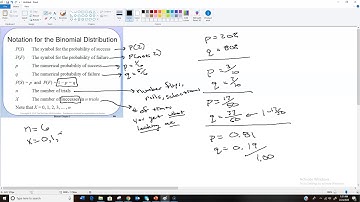 Notation for the Binomial Distribution
P(S) The symbol for the probability of success → P(2)
P(F) The symbol for the probability of failure → P(not 2)
p The numerical probability of success → p = 1/6
q The numerical probability of failure → q = 5/6
P(S) = p and P(F) = 1 − p = q
n The number of trials → number flips, rolls, selections
X The number of successes in n trials → # of times you get what looking for
Note that X = 0, 1, 2, 3, ..., n
n = 6
x = 0, 1,
p = 20%
q = 80%
p = 3/10
q = 7/10
p = 13/50
q = 37/50 or 1 - 13/50
p = 0.81
q = 0.19
1.00